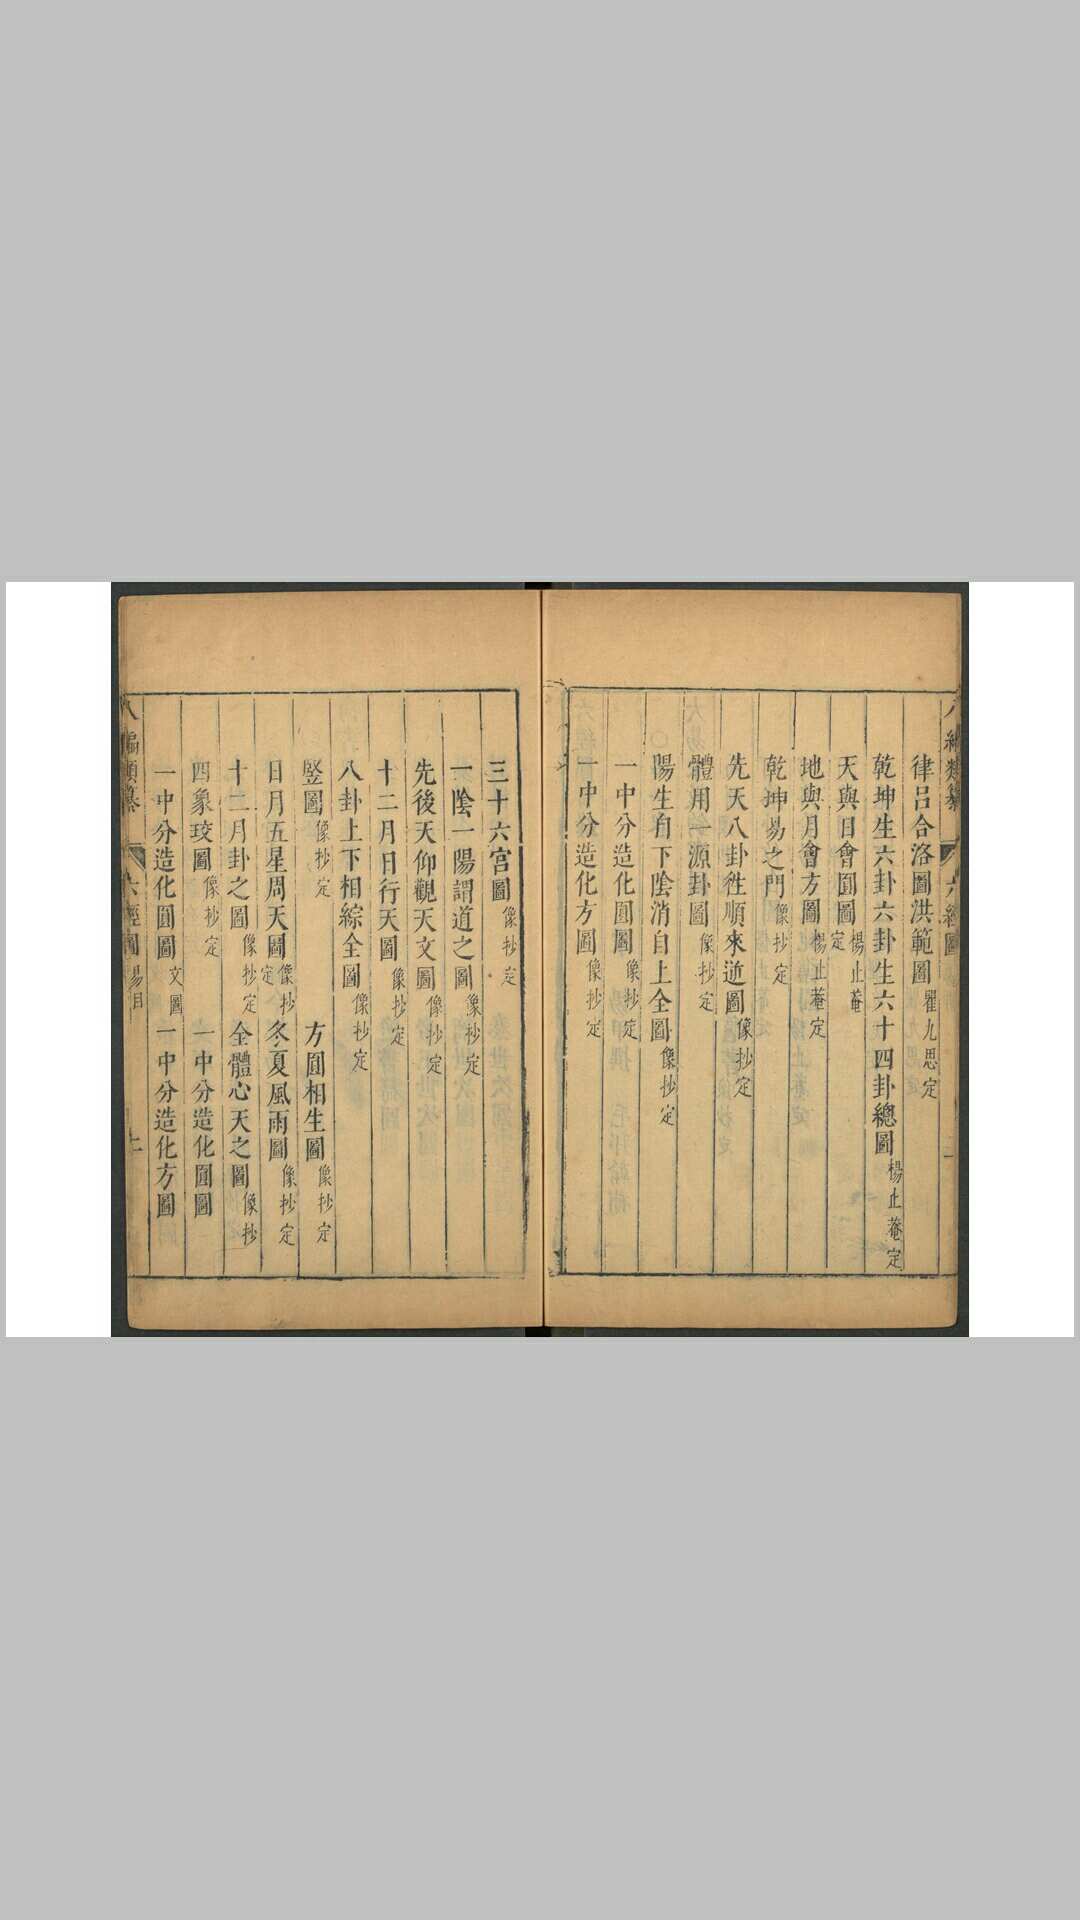 律呂合洛圖洪範圖瞿九思定
乾坤生六卦六卦生六十四卦總圖楊止菴定
天與日會圓圖楊止菴定
地與月會方圖楊止菴定
乾坤易之門像抄定
先天八卦徃順來逆圖像抄定
體用一源卦圖像抄定
陽生自下陰消自上全圖像抄定
一中分造化圓圖像抄定
一中分造化方圖像抄定
三十六宮圖像抄定
一陰一陽謂道之圖像抄定
先後天仰觀天文圖像抄定
十二月日行天圖像抄定
八卦上下相綜全圖像抄定
竪圖像抄定 方圓相生圖像抄定
日月五星周天圖像抄定 冬夏風雨圖像抄定
十二月卦之圖像抄定 全體心天之圖像抄
四象珓圖像抄定 一中分造化圓圖
一中分造化圓圖文圖 一中分造化方圖
八編類纂 六經圖易目